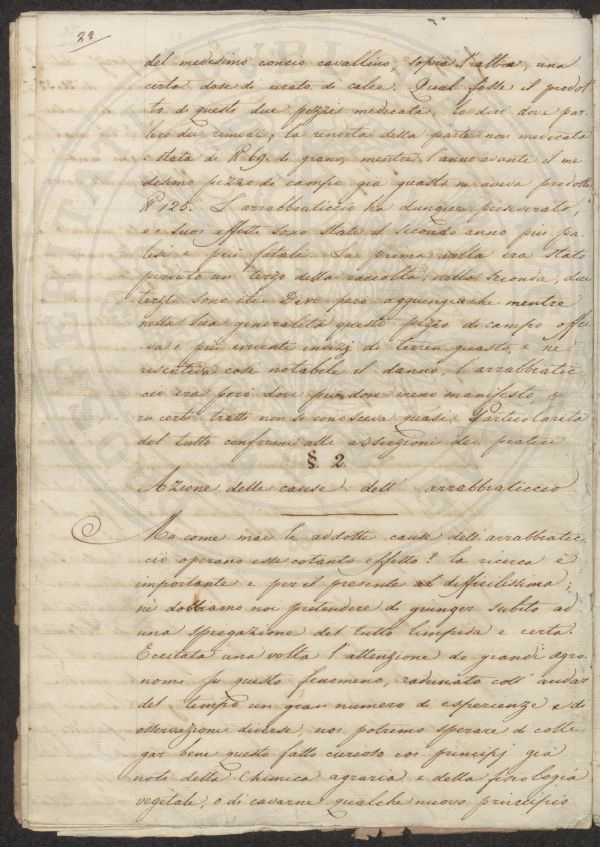 22
del medesimo concio cavallino, sopra l'altra, una
certa dose di urato di calce. Qual fosse il prodot
to di queste due pezze medicate, lo dirò dove par
lerò dei rimedi; la rendita della parte non medicata
è stata di ℔ 69. di grano, mentre l'anno avante il me
desimo pezzo di campo già guasto ne aveva prodotte
℔ 125. L'arrabbiaticcio ha dunque perseverato,
e i suoi effetti sono stati il secondo anno più pa
lesi e più fatali. La prima volta era stato
perduto un terzo della raccolta; nella seconda, due
terzi sono iti. Devo però aggiungere che mentre
nella sua generalità questo pezzo di campo offri
va i più evidente indizj di terren guasto, e ne
risentiva così notabile il danno, l'arrabbiatic
cio era però dove più dove meno manifesto, e
in certi tratti non si conosceva quasi. Particolarità
del tutto conforme alle asserzioni dei pratici
§. 2.
Azione delle cause dell' arrabbiaticcio
Ma come mai le addotte cause dell'arrabbiatic
cio operano esse cotanto effetto? la ricerca è
importante e per il presente difficilissima,
nè dobbiamo noi pretendere di giunger subito ad
una spiegazione del tutto limpida e certa.
Eccitata una volta l'attenzione de grandi agro
nomi su questo fenomeno, radunato coll' andar
del tempo un gran numero di esperienze e di
osservazioni diverse, noi potremo sperare di colle
gar bene questo fatto curioso coi principj già
noti della Chimica agraria e della fisiologia
vegetale, o di cavarne qualche nuovo principio